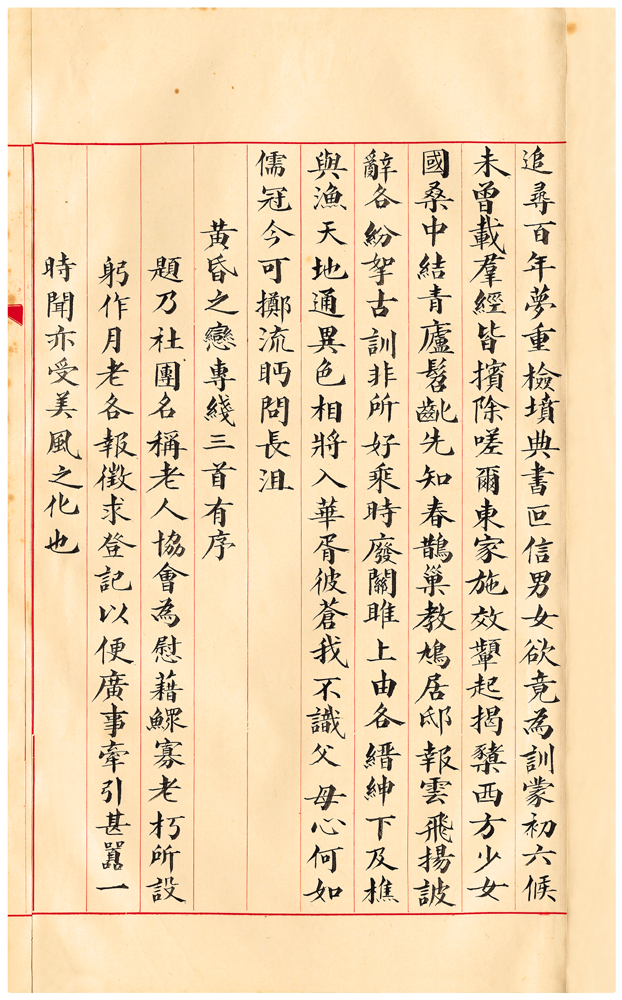 追尋百年夢重檢墳典書叵信男女欲竟為訓蒙初六候
未曾載羣經皆擯除嗟爾東家施效顰起揭櫫西方少女
國桑中結青廬髫齔先知春鵲巢教鳩居邸報雲飛揚詖
辭各紛挐古訓非所好乘時廢關雎上由各縉紳下及樵
與漁天地通異色相將入華胥彼蒼我不識父母心何如
儒冠今可擲流眄問長沮
黃昏之戀專綫三首有序
題乃社團名稱老人協會為慰藉鰥寡老朽所設
躬作月老各報徵求登記以便廣事牽引甚嚚一
時聞亦受美風之化也